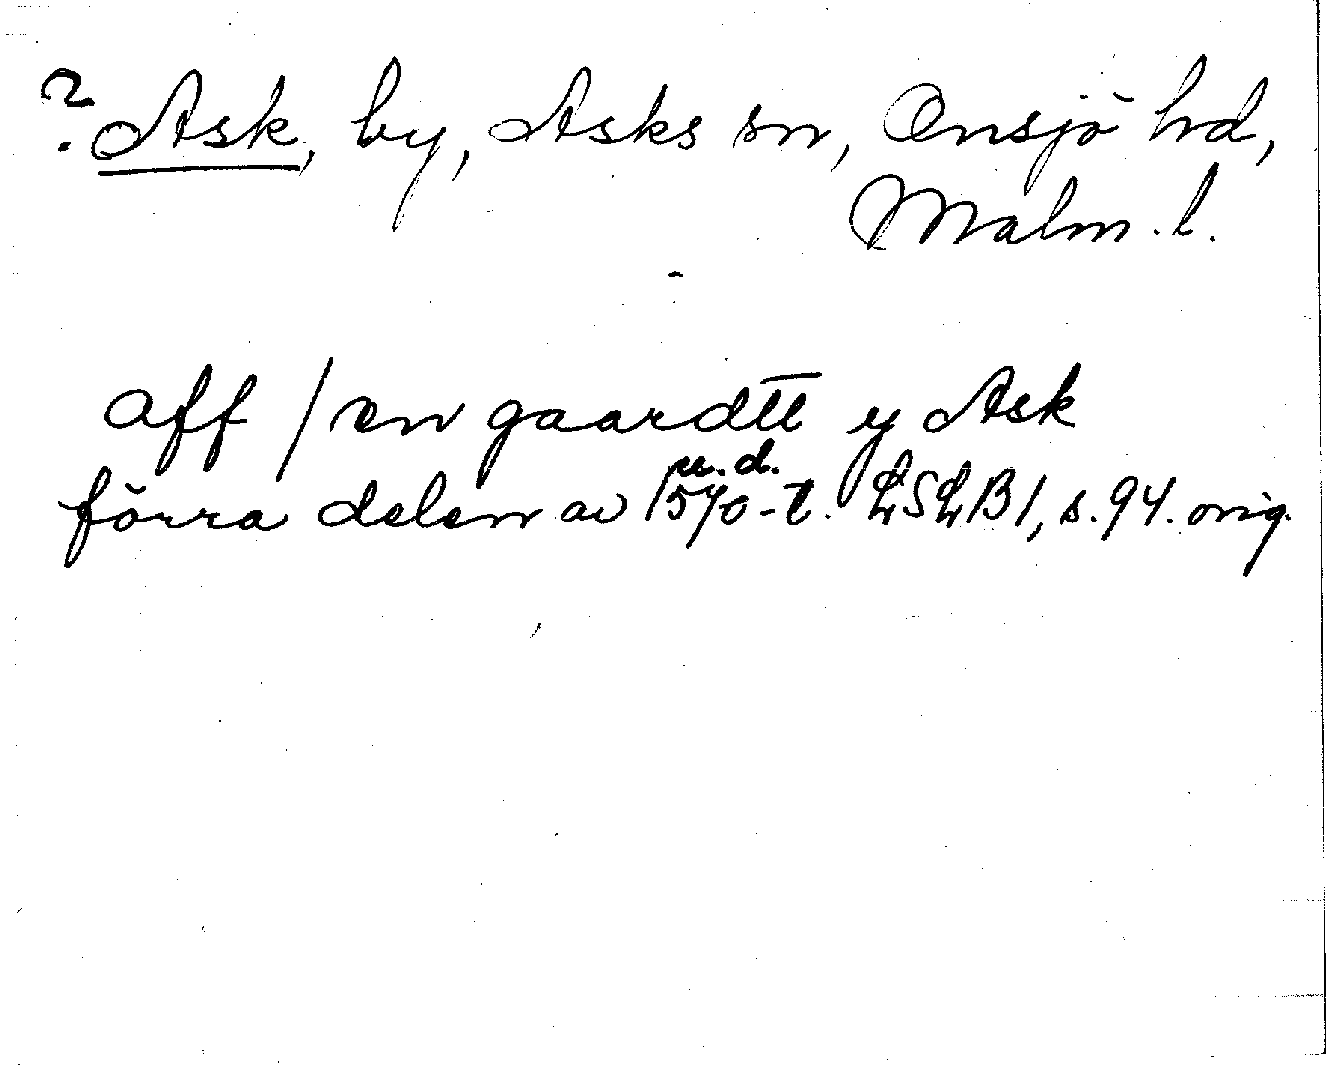 ? Ask, by, Asks sn, Onsjö hd,
Malm. l.
aff / en gaardtt y Ask
u. d.
förra delen av 1570-t. LSLB1, s. 94. orig.